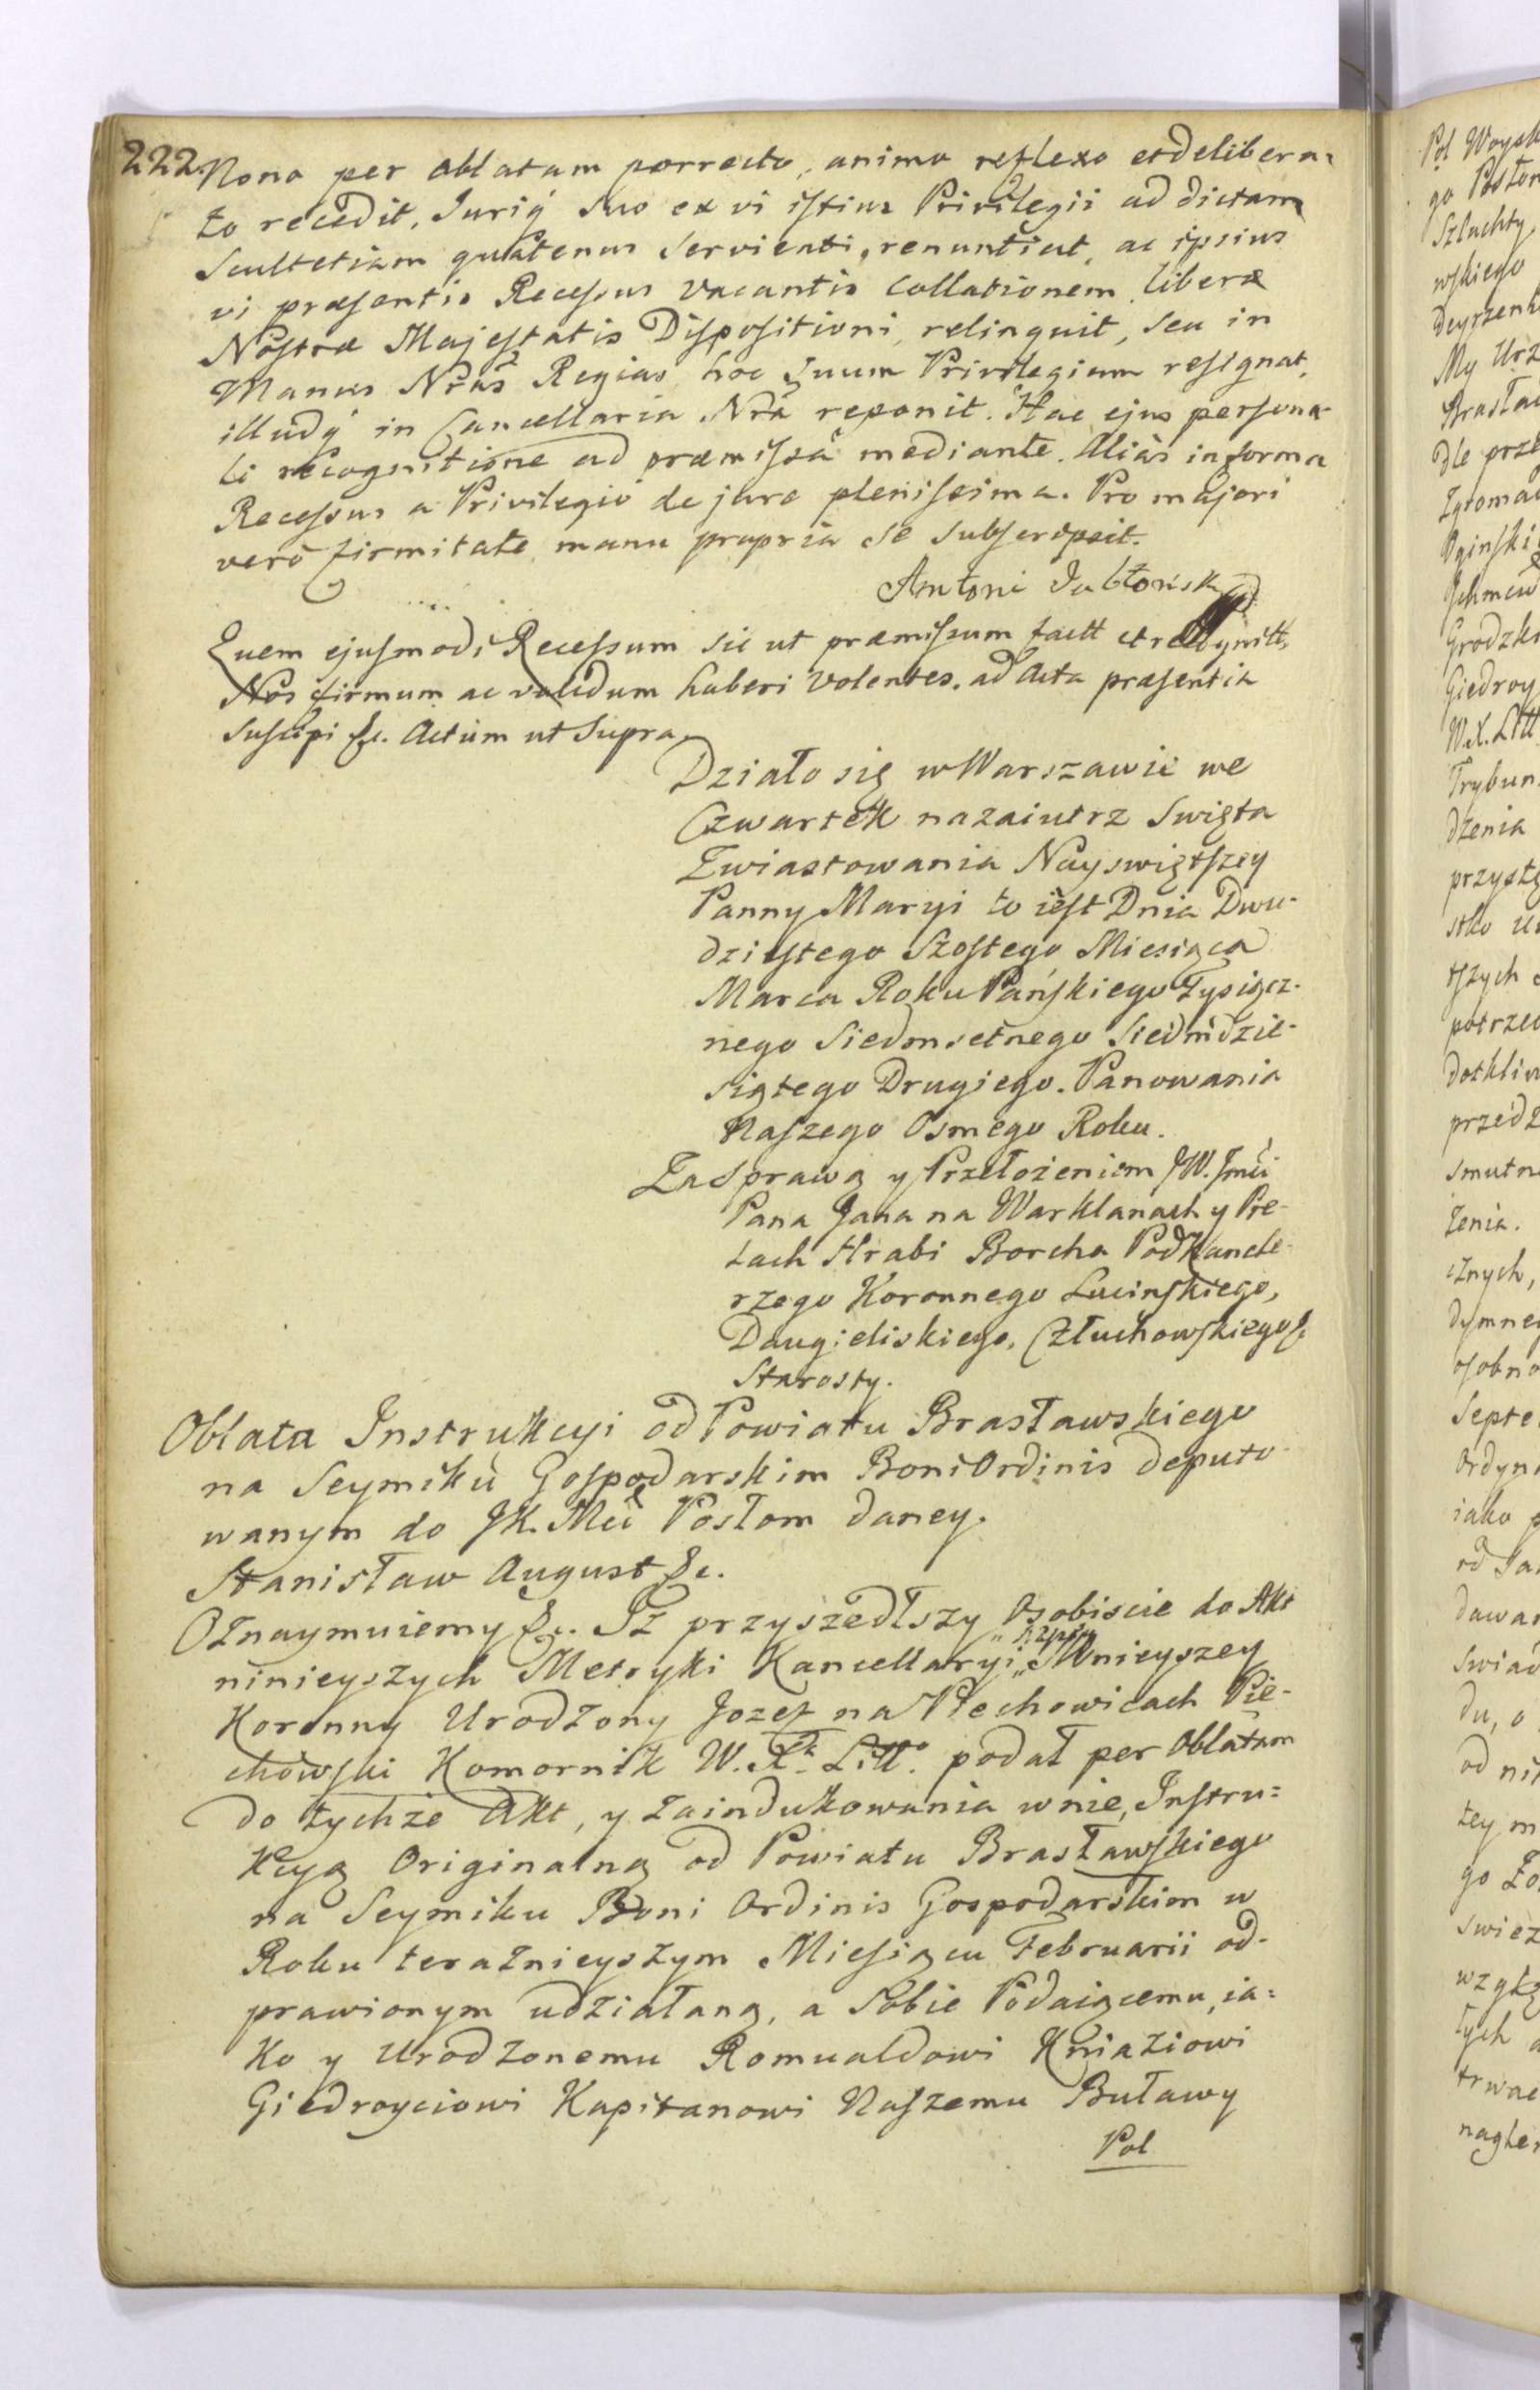 222. Nono per oblatam porrecto, animo reflexo et delibera=
to recedit, Juriq́ Suo ex vi istius Privilegii ad dictam
Scultetiam quatenus Servienti, renuntiat, ac ipsius
vi præsentis Recessus vacantis Collationem, liberæ
Nostræ Majestatis Dispositioni relinquit, seu in
Manus Nr̃as Regias hoc Suum Privilegium resignat,
illudq́ in Cancellaria Nr̃a reponit. Hac ejus persona-
li recognitione ad præmissa mediante. Aliàs in forma
Recessus a Privilegio de jure plenissima. Pro majori
verò firmitate manu propria se subscripsit.
Antoni Jabłoński
Quem ejusmodi Recessum sic ut præmissum factt et recognitt,
Nos firmum ac validum haberi volentes, ad Acta præsentia
suscipi &c. Actum ut Supra.
Działo się w Warszawie we
Czwartek nazaiutrz Swięta
Zwiastowania Nayswiętszey
Panny Maryi to iest Dnia Dwu-
dziestego Szostego Miesiąca
Marca Roku Pańskiego Tysiącz-
nego Siedmsetnego Siedmdzie-
siątego Drugiego. Panowania
Naszego Osmego Roku.
Za Sprawą y Przełożeniem JW. Jmći
Pana Jana na Warklanach y Pre-
lach Hrabi Borcha Podkancle-
rzego Koronnego Lucinskiego,
Daugieliskiego, Człuchowskiego &
Starosty.
Oblata Instrukcyi od Powiatu Brasławskiego
na Seymiku Gospodarskim Boni Ordinis deputo-
wanym do JK. Mći Posłom daney.
Stanisław August &c.
Oznaymuiemy &c. Iż przyszedłszy Osobiscie do Akt
ninieyszych Metryki Kancellaryi Mnieyszey
Koronny Urodzony Jozef na Plechowicach Ple-
chowski Komornik W. X. Litt. podał per Oblatam
do tychże Akt, y Zaindukowania w nie, Instru=
kcyą Originalną od Powiatu Brasławskiego
na Seymiku Boni Ordinis Gospodarskim w
Roku teraznieyszym Miesiącu Februarii od-
prawionym udziałaną, a Sobie Podaiącemu, ia=
ko y Urodzonemu Romualdowi Kniaziowi
Giedroyciowi Kapitanowi Naszemu Buławy
Pol
Pol Woysk
go Posłom
Szlachty
wskiego
My Urz
Brasław
dle prze
Zgromad
Oginski
Grodzki
Giedroy
W.X. Litt
Trybun
dzenia
przystę
tszych
potrzeb
dotkliw
przedz
smutne
żenia.
cznych,
dymne
osobno
Septe
Ordyn
iako p
dawan
swiad
du, o
od ni
tey m
go Zo
swiez
wzglę
tych
trwa
nagle